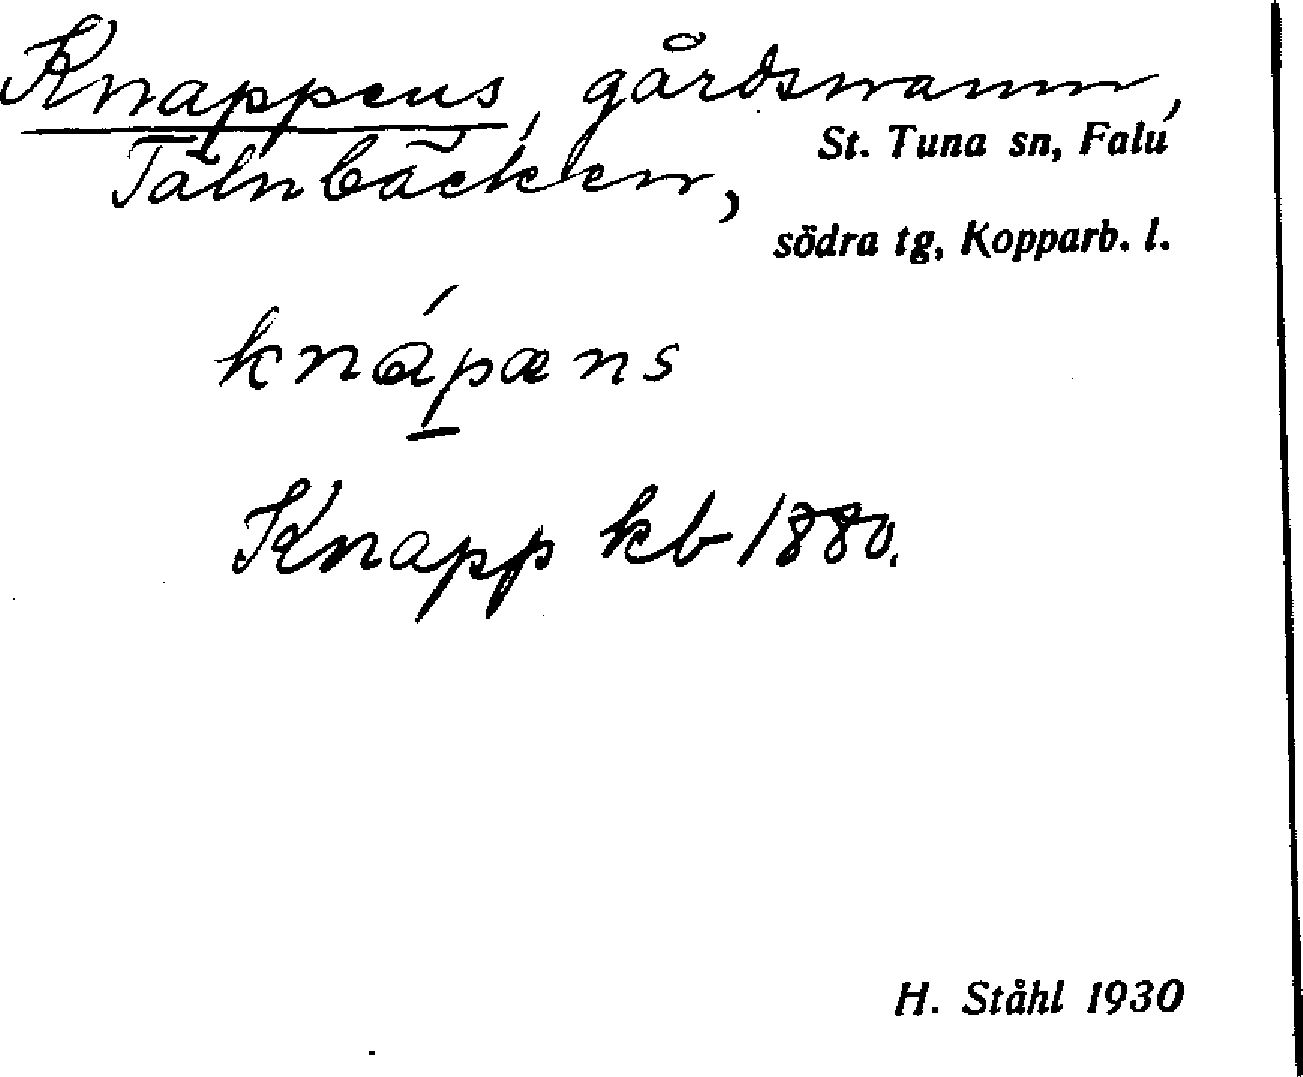 Knappens, gårdsnamn,
Tälnbäcken, St. Tuna sn, Falu
södra tg, Kopparb. l.
knápæns
Knapp kb 1880.
H. Ståhl 1930